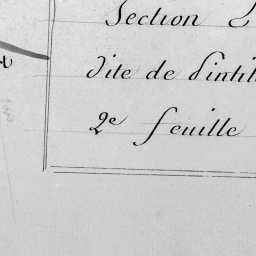 Section
dite de
2e feuille